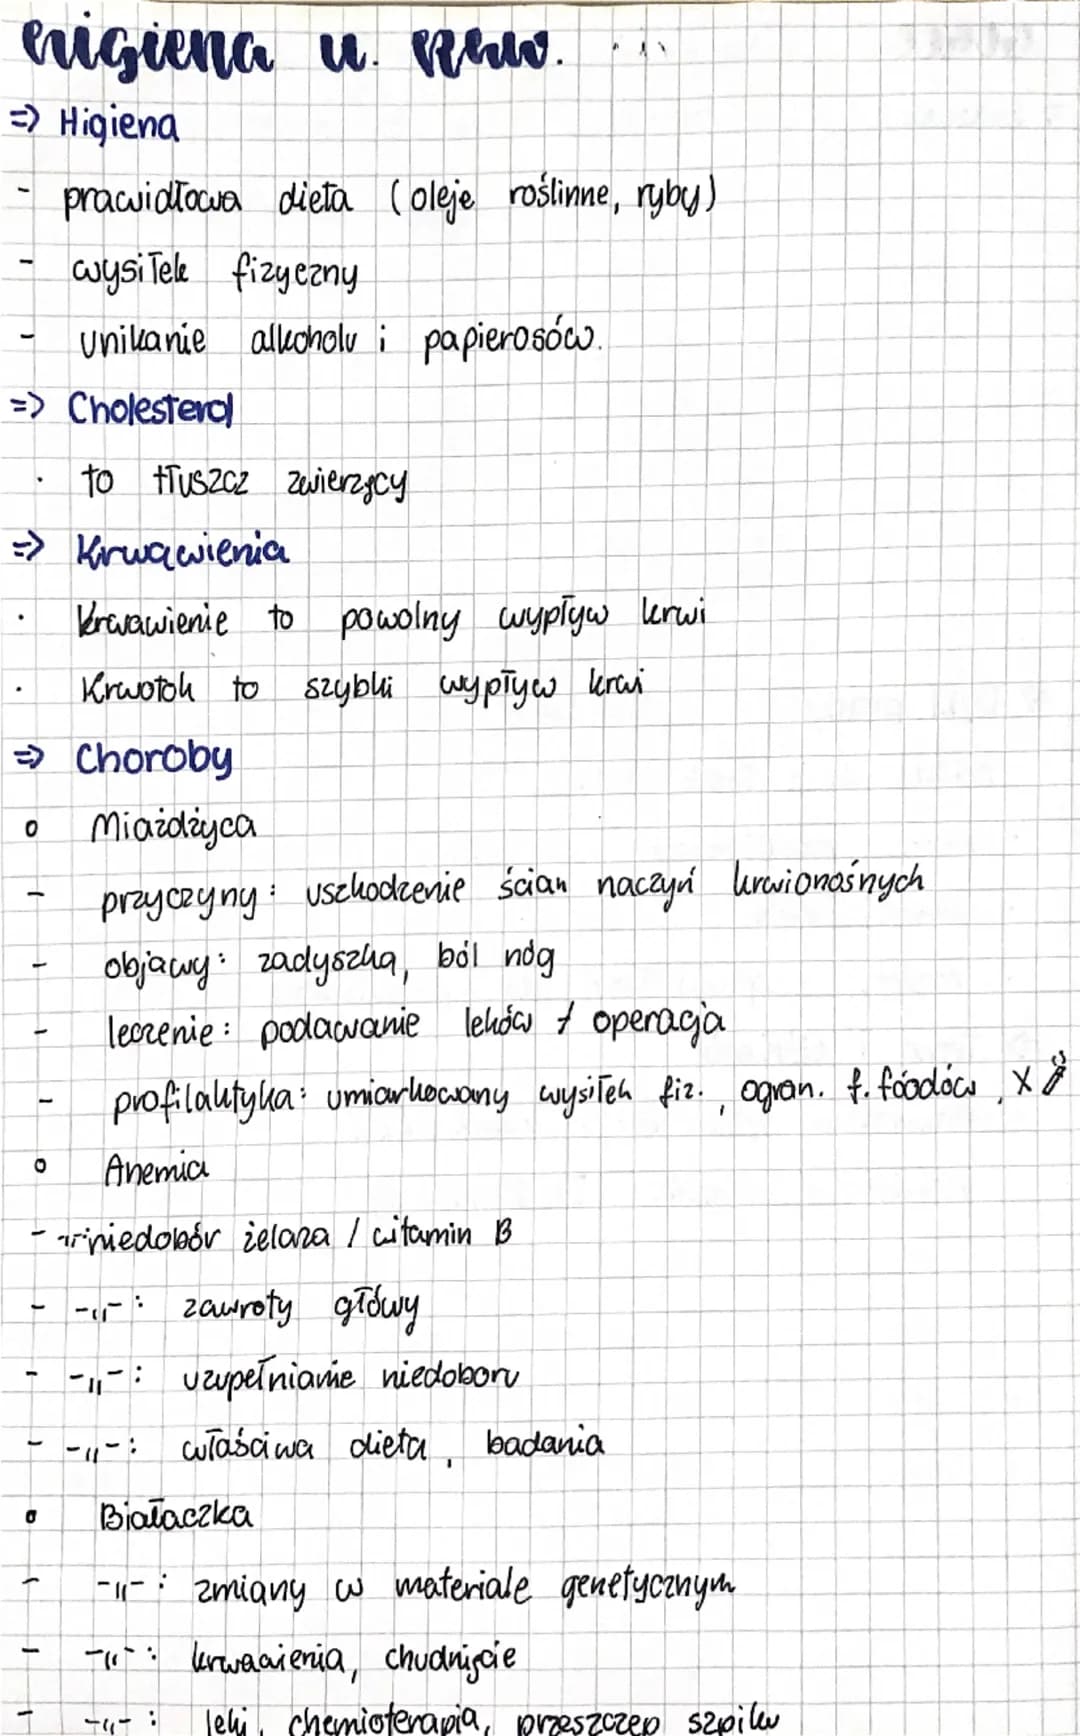 higiena u. krw.
=> Higiena
- prawidłowa dieta (oleje roślinne, ryby)
- wysiłek fizyczny
- unikanie alkoholu i papierosów.
=> Cholesterol
· to tłuszcz zwierzęcy
=> Krwawienia
· Krwawienie to powolny wypływ krwi
· Krwotok to szybki wypływ krwi
=> Choroby
o Miażdżyca
- przyczyny: uszkodzenie ścian naczyń krwionośnych
- objawy: zadyszka, ból nóg
- leczenie: podawanie leków / operacja
- profilaktyka: umiarkowany wysiłek fiz., ogran. f. foodów, X
o Anemia
- -||- niedobór żelaza / witamin B
- -||-: zawroty głowy
- -||-: uzupełnianie niedoboru
- -||-: właściwa dieta, badania
o Białaczka
- -||-: zmiany w materiale genetycznym
- -||-: krwawienia, chudnięcie
- -||-: leki, chemioterapia, przeszczep szpiku